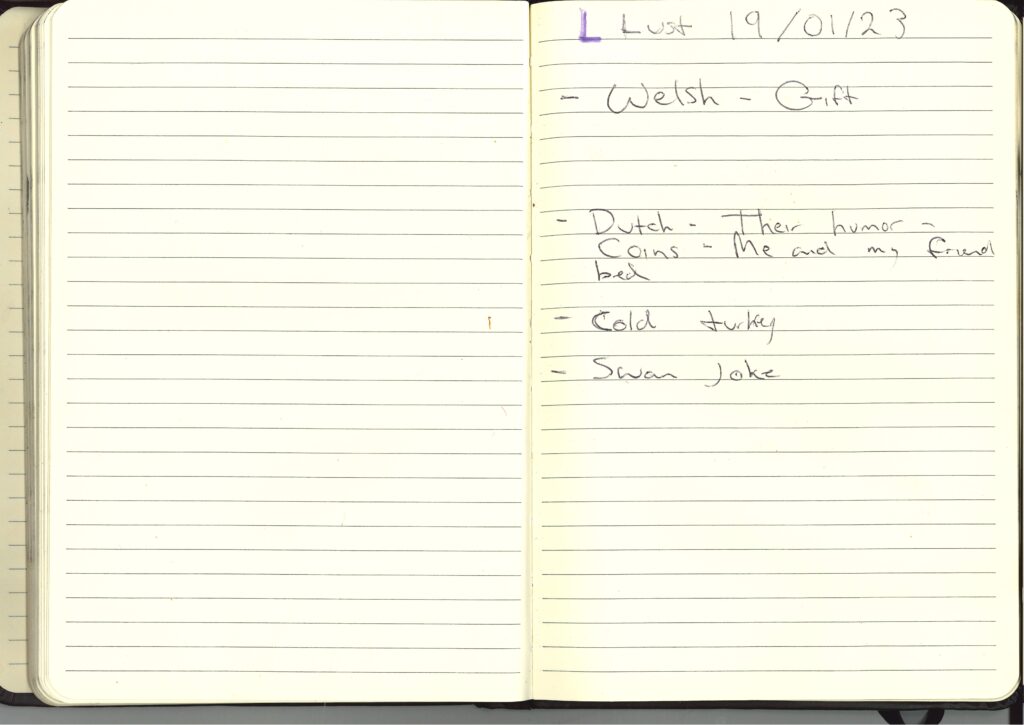 L Lust 19/01/23
- Welsh - Gift
- Dutch - Their humor -
Coins - Me and my friend
bed
- Cold turkey
- Swan Joke